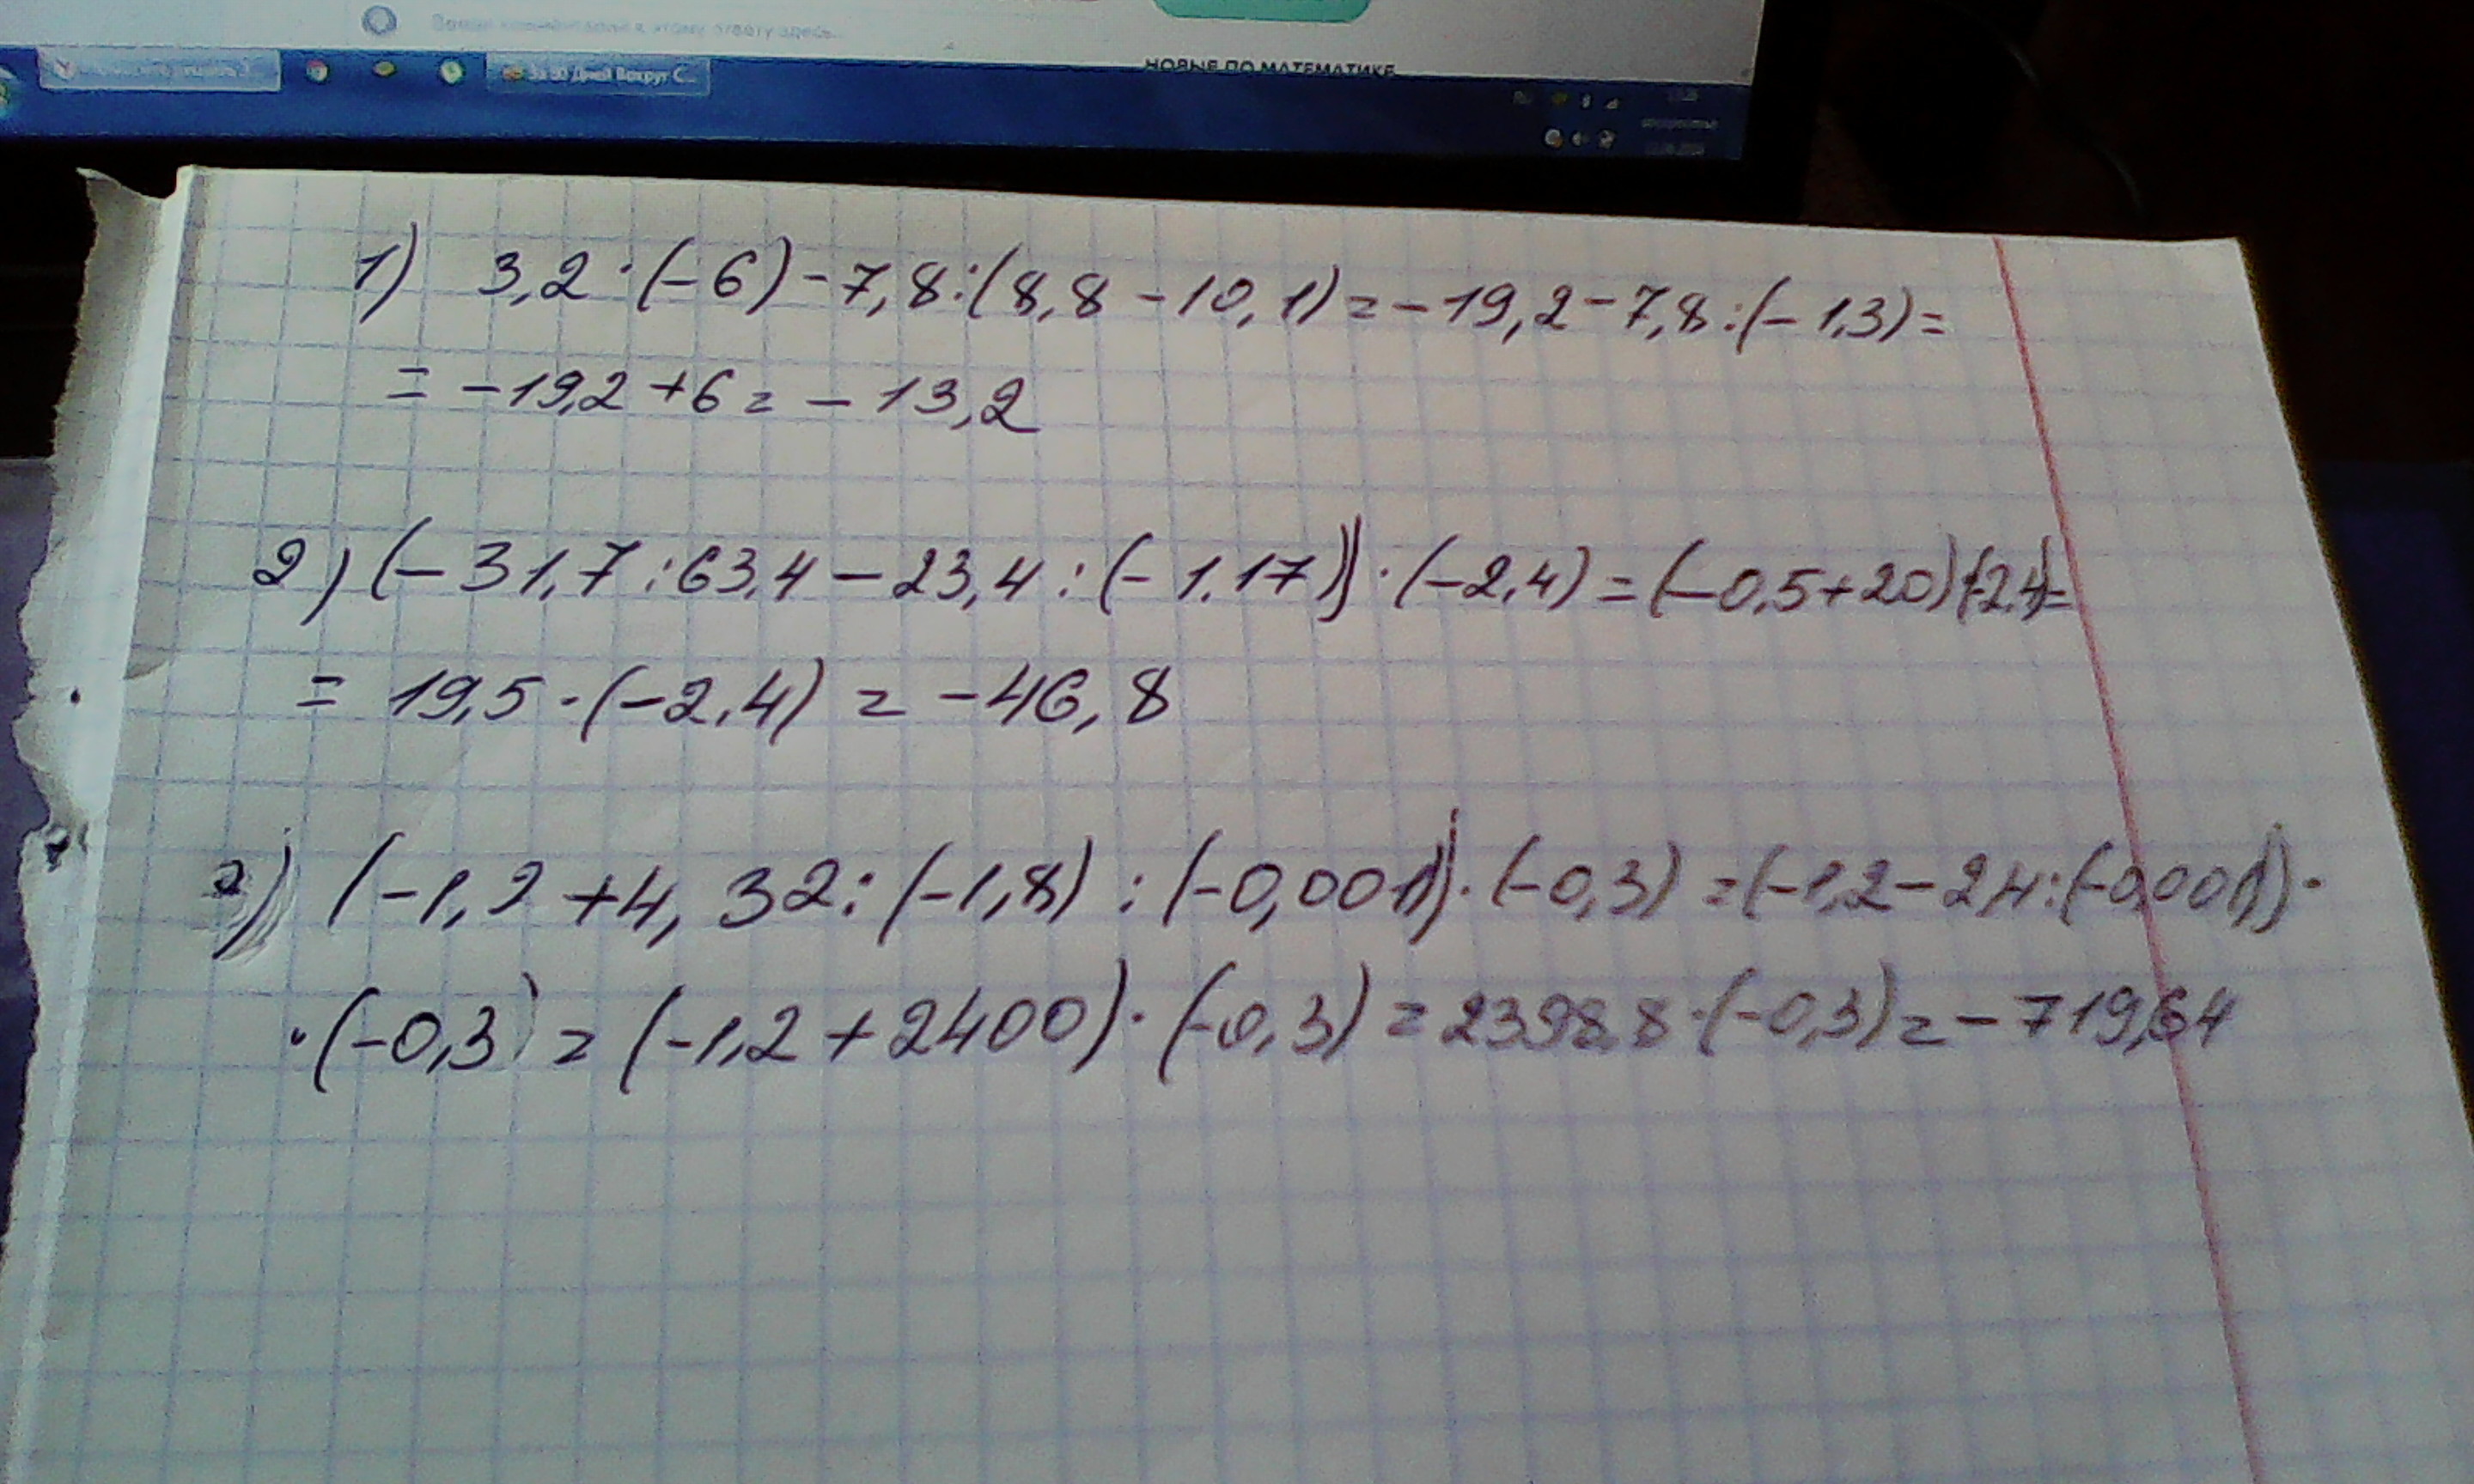 Ваши комментарии к этому ответу здесь...
НОВЫЕ ПО МАТЕМАТИКЕ
За 80 Дней Вокруг С...
1) 3,2·(-6)-7,8:(8,8-10,1)=-19,2-7,8:(-1,3)=
=-19,2+6=-13,2
2) (-31,7:63,4-23,4:(-1,17))·(-2,4)=(-0,5+20)(-2,4)=
=19,5·(-2,4)=-46,8
(-1,2+4,32:(-1,8):(-0,001))·(-0,3)=(-1,2-2,4:(-0,001))·
·(-0,3)=(-1,2+2400)·(-0,3)=2398,8·(-0,3)=-719,64